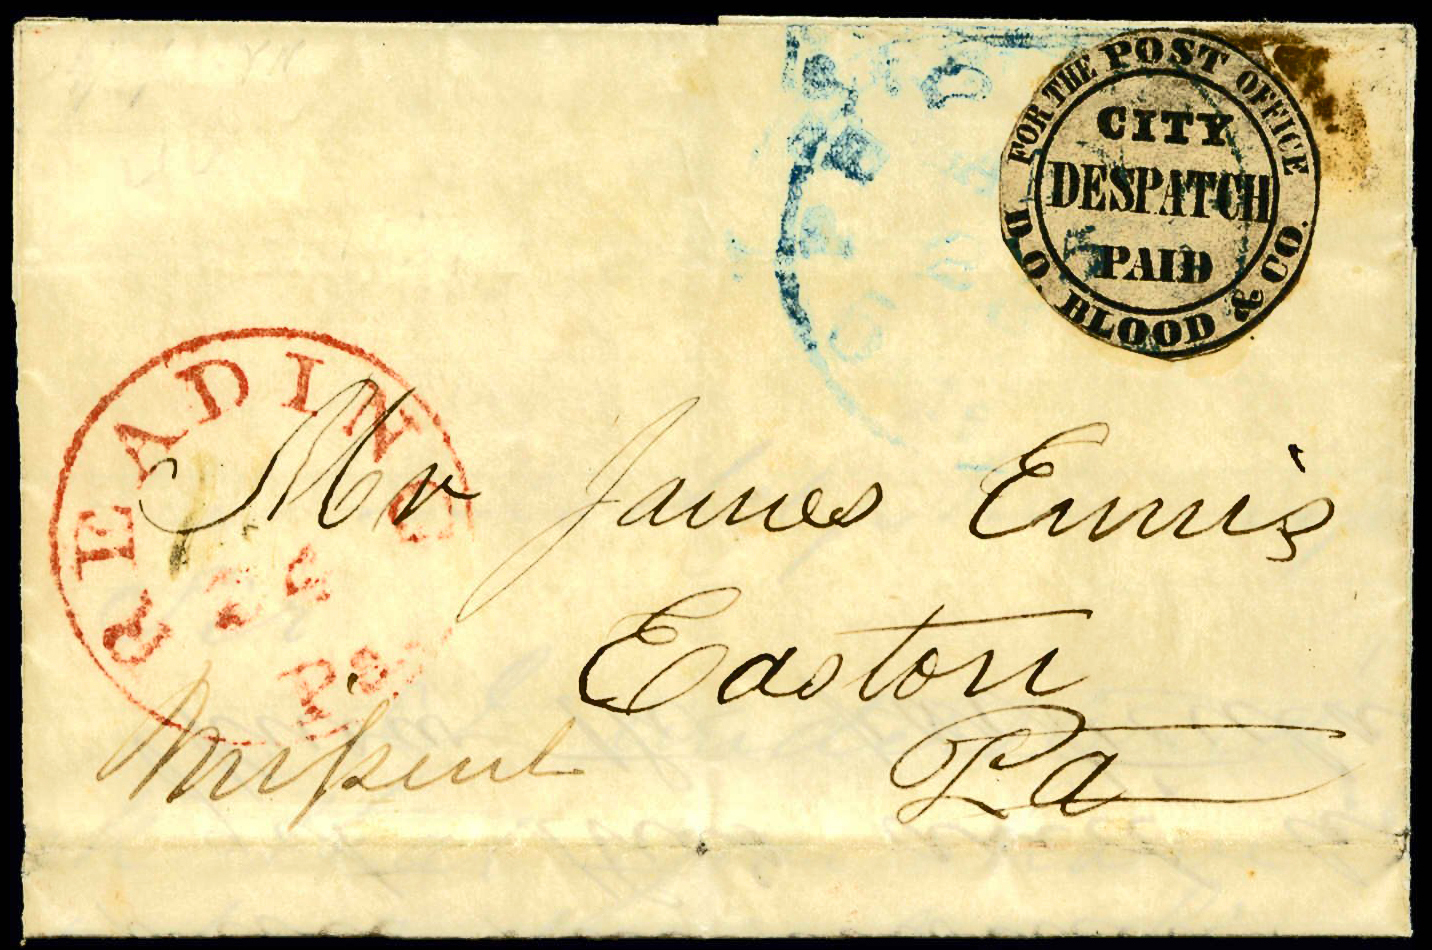 FOR THE POST OFFICE
CITY
DESPATCH
PAID
D.O. BLOOD & CO.
READING
Pa
Mr James Ennis
Easton
Pa
Missent